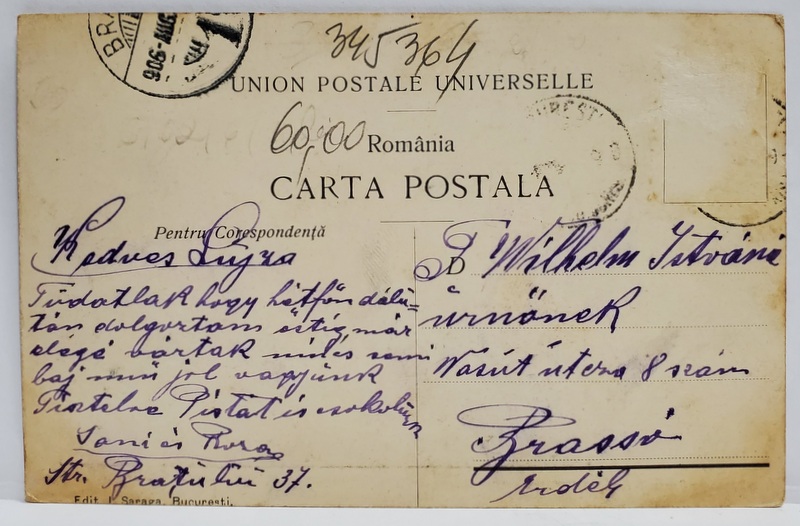 BRA
906 AUG
1
345 364
UNION POSTALE UNIVERSELLE
60,00
România
CARTA POSTALA
Pentru Corespondență
Kedves Lujza
Tudatlak hogy hétfőn délu=
tán dolgoztam estig, már
elégé vártak nincs semi
baj mű jól vagyunk
Tisztelve Pistát is csokolunk
Sani és Roza
Str. Brațului 37.
Edit. I. Saraga, Bucuresti.
D
T Wilhelm Istváné
úrnőnek
Vasút utcza 8 szám
Brassó
Erdély